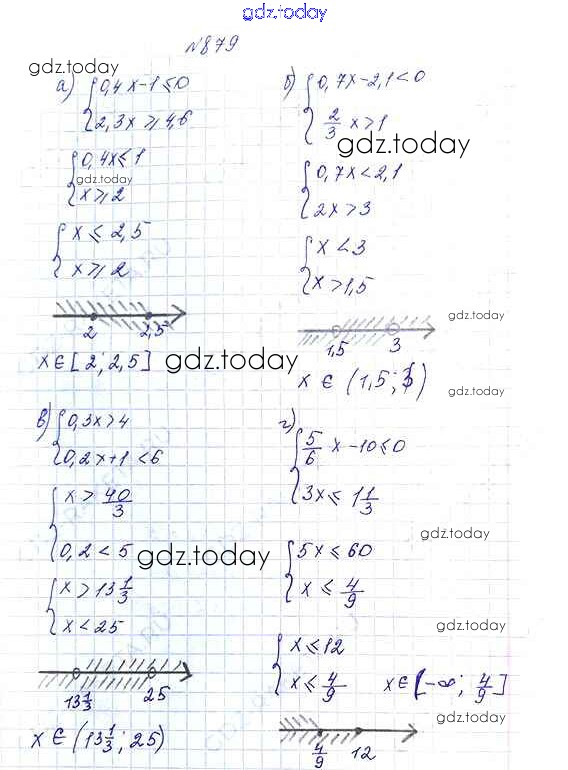 gdz.today
№879
gdz.today
а) { 0,4x-1≤0
2,3x ≥ 4,6
{ 0,4x≤1
gdz.today
x≥2
{ x ≤ 2,5
x≥2
2 2,5
x∈[2; 2,5]
gdz.today
б) { 0,7x-2,1<0
2/3 x>1
gdz.today
{ 0,7x<2,1
2x>3
{ x<3
x>1,5
gdz.today
1,5 3
x ∈ (1,5; 3)
gdz.today
в) { 0,3x>4
0,2x+1<6
{ x > 40/3
0,2<5
gdz.today
{ x>13 1/3
x<25
13 1/3 25
x∈(13 1/3; 25)
г) { 5/6 x-10≤0
3x≤1 1/3
gdz.today
{ 5x≤60
x ≤ 4/9
gdz.today
{ x≤12
x≤ 4/9
x∈[-∞; 4/9]
gdz.today
4/9 12